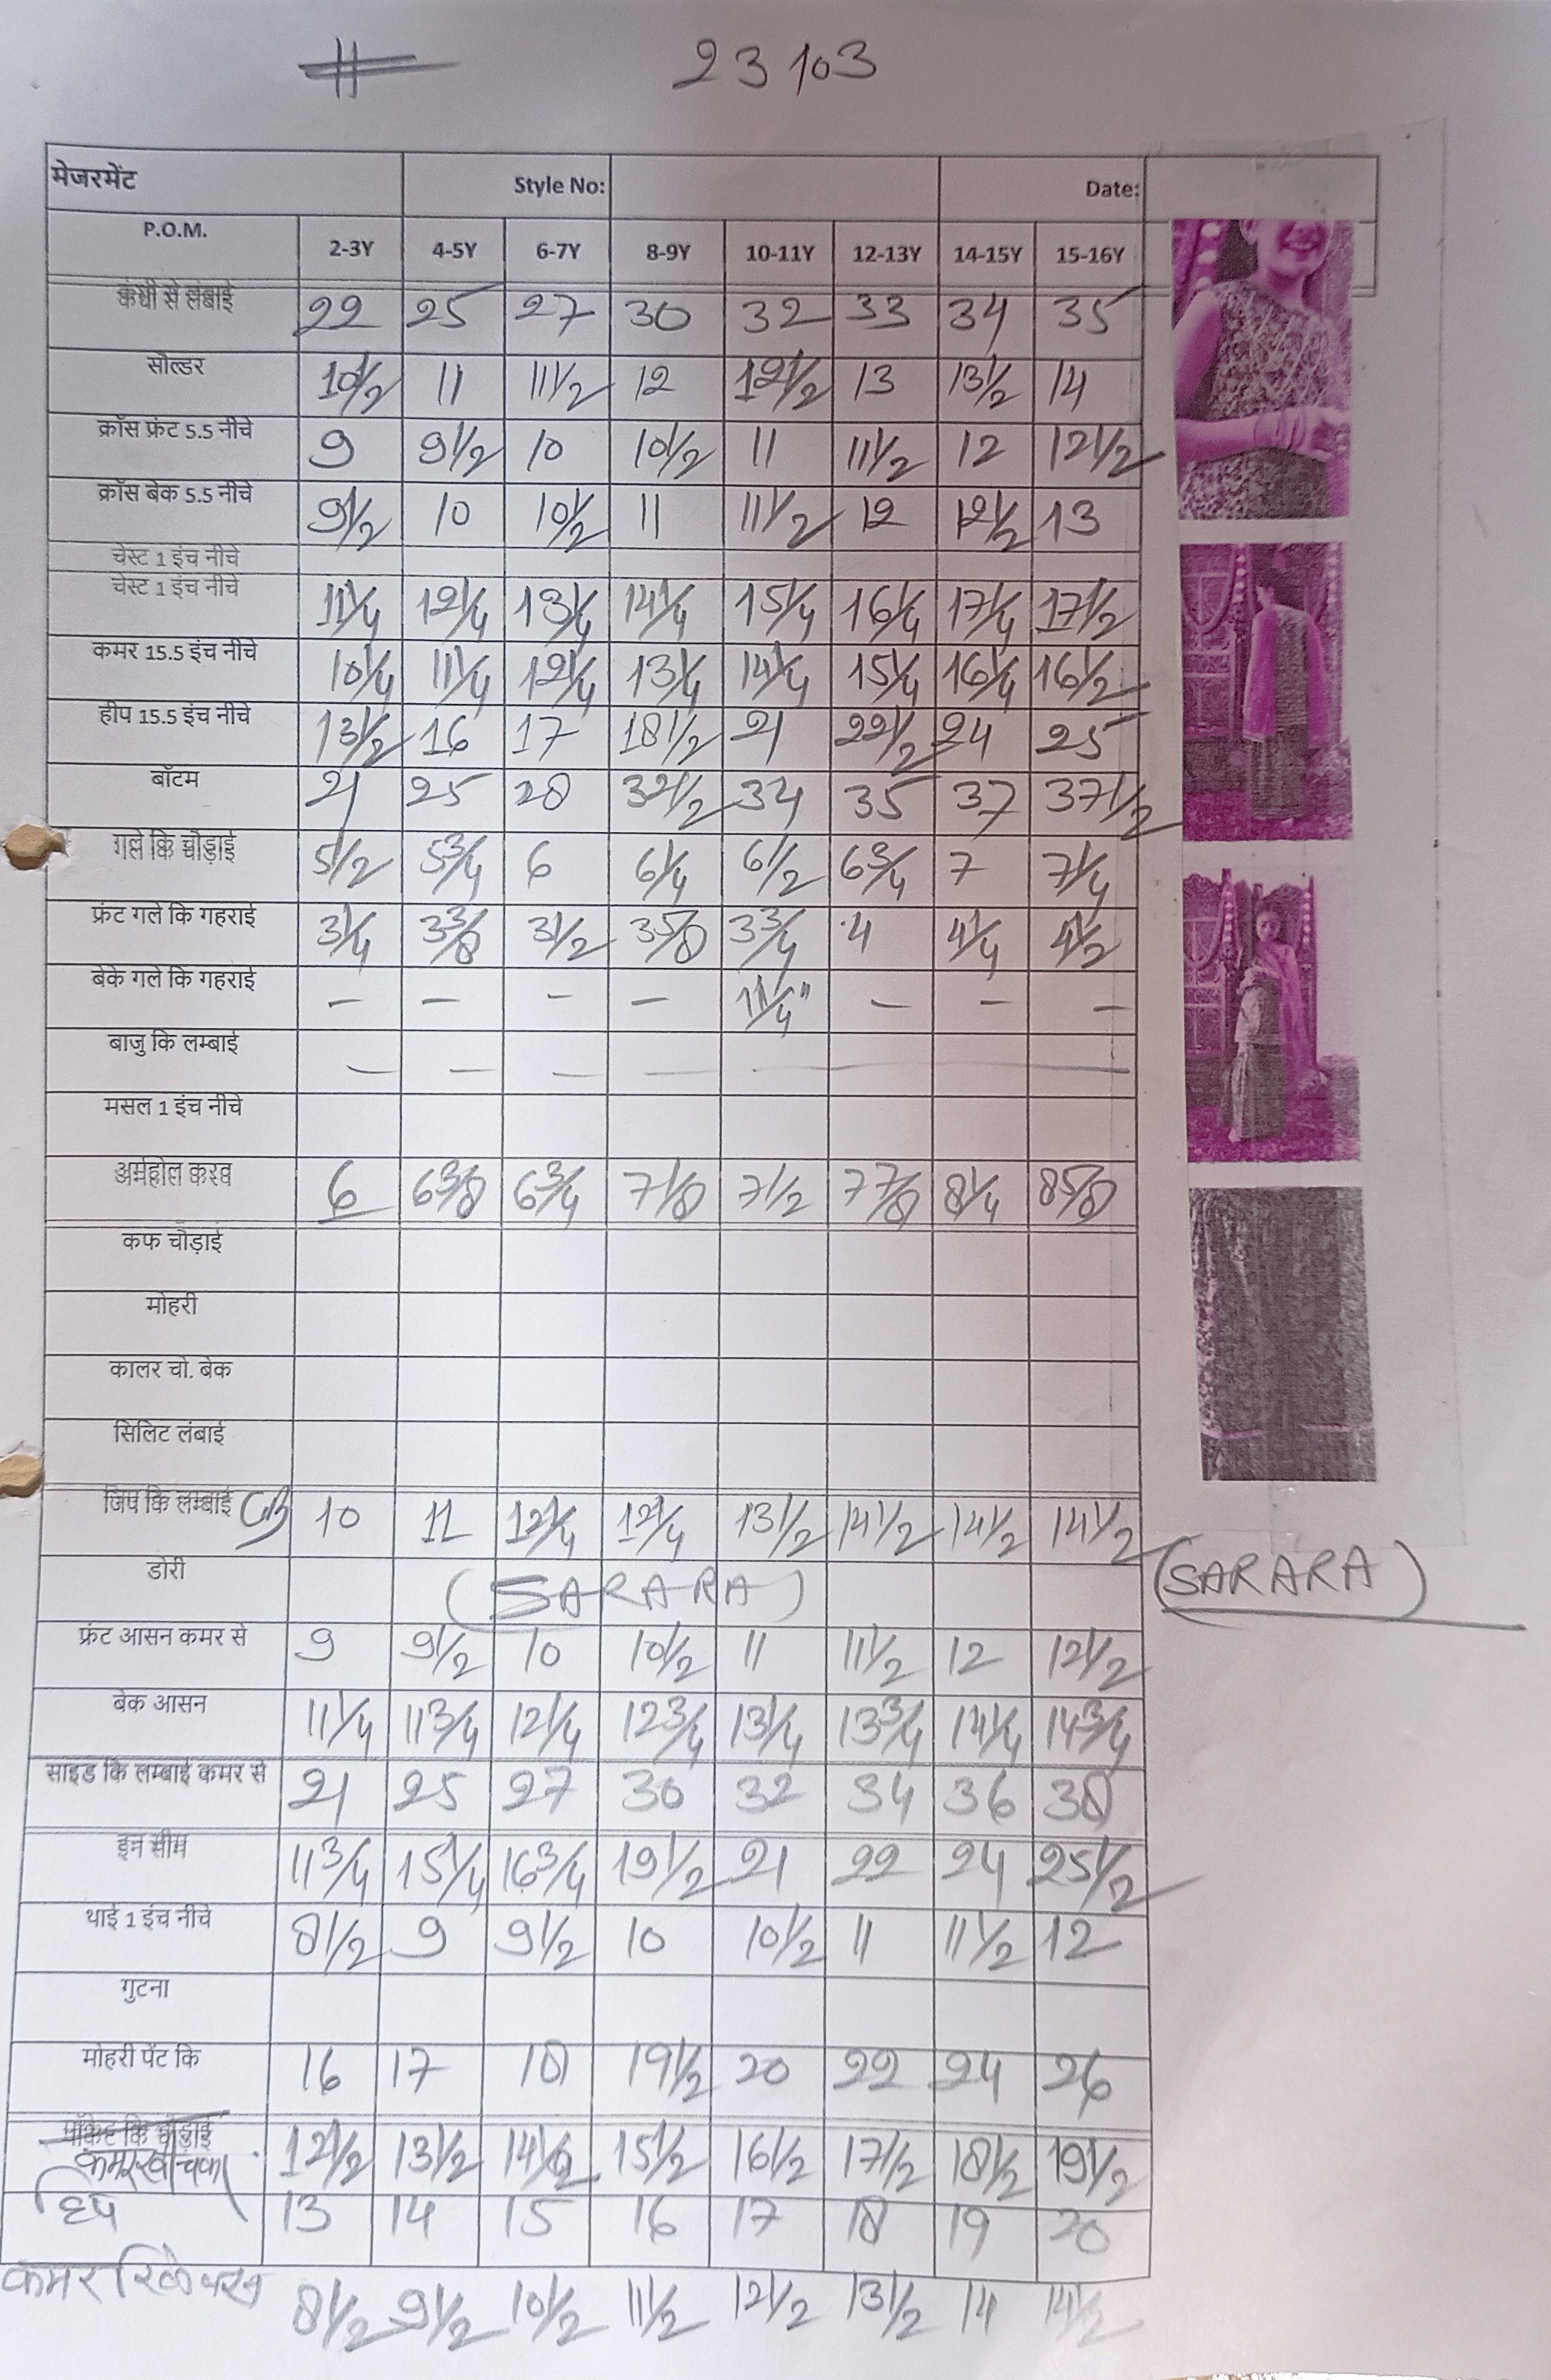 # 23103
मेजरमेंट Style No: Date:
P.O.M. 2-3Y 4-5Y 6-7Y 8-9Y 10-11Y 12-13Y 14-15Y 15-16Y
कंधी से लंबाई 22 25 27 30 32 33 34 35
सौल्डर 10 1/2 11 11 1/2 12 12 1/2 13 13 1/2 14
क्रॉस फ्रंट 5.5 नीचे 9 9 1/2 10 10 1/2 11 11 1/2 12 12 1/2
क्रॉस बेक 5.5 नीचे 9 1/2 10 10 1/2 11 11 1/2 12 12 1/2 13
चेस्ट 1 इंच नीचे
चेस्ट 1 इंच नीचे 11 1/4 12 1/4 13 1/4 14 1/4 15 1/4 16 1/4 17 1/4 17 1/2
कमर 15.5 इंच नीचे 10 1/4 11 1/4 12 1/4 13 1/4 14 1/4 15 1/4 16 1/4 16 1/2
हीप 15.5 इंच नीचे 13 1/2 16 17 18 1/2 21 22 1/2 24 25
बॉटम 21 25 28 32 1/2 34 35 37 37 1/2
गले कि चौड़ाई 5 1/2 5 3/4 6 6 1/4 6 1/2 6 3/4 7 7 1/4
फ्रंट गले कि गहराई 3 1/4 3 3/8 3 1/2 3 5/8 3 3/4 4 4 1/4 4 1/2
बेके गले कि गहराई – – – – 1 1/4" – – –
बाजु कि लम्बाई – – – – – – – –
मसल 1 इंच नीचे
अर्महोल करव 6 6 3/8 6 3/4 7 1/8 7 1/2 7 7/8 8 1/4 8 5/8
कफ चौड़ाई
मोहरी
कालर चो. बेक
सिलिट लंबाई
जिप कि लम्बाई CB 10 11 12 1/4 12 1/4 13 1/2 14 1/2 14 1/2 14 1/2
डोरी (SARARA) (SARARA)
फ्रंट आसन कमर से 9 9 1/2 10 10 1/2 11 11 1/2 12 12 1/2
बेक आसन 11 1/4 11 3/4 12 1/4 12 3/4 13 1/4 13 3/4 14 1/4 14 3/4
साइड कि लम्बाई कमर से 21 25 27 30 32 34 36 38
इन सीम 11 3/4 15 1/4 16 3/4 19 1/2 21 22 24 25 1/2
थाई 1 इंच नीचे 8 1/2 9 9 1/2 10 10 1/2 11 11 1/2 12
गुटना
मोहरी पेंट कि 16 17 18 19 1/2 20 22 24 26
पॉकेट कि चौड़ाई
कमर खींचका 12 1/2 13 1/2 14 1/2 15 1/2 16 1/2 17 1/2 18 1/2 19 1/2
हिप 13 14 15 16 17 18 19 20
कमर रिलेक्स 8 1/2 9 1/2 10 1/2 11 1/2 12 1/2 13 1/2 14 14 1/2